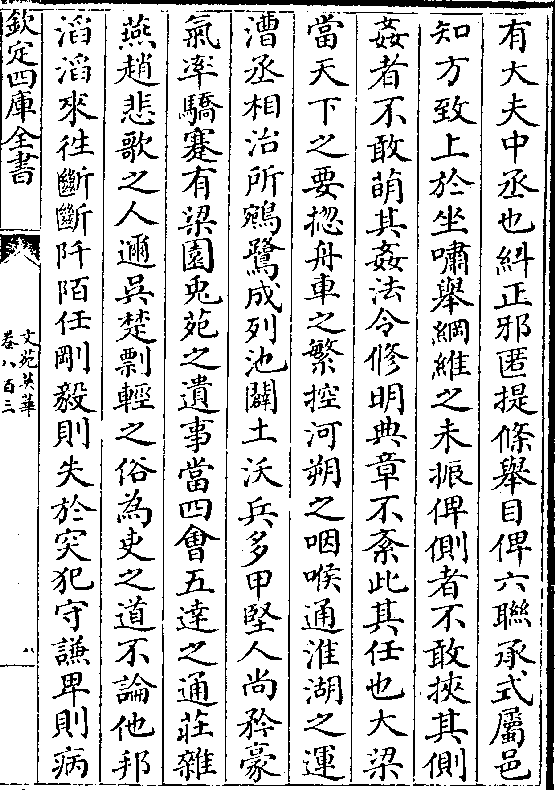 有大夫中丞也糾正邪匿提條舉目俾六聯承式屬邑
知方致上於坐嘯舉綱維之未振俾側者不敢挾其側
姦者不敢萌其姦法令修明典章不紊此其任也大梁
當天下之要揔舟車之繁控河朔之咽喉通淮湖之運
漕丞相治所鵷鷺成列池闢土沃兵多甲堅人尚矜豪
氣率驕蹇有梁園兎苑之遺事當四會五達之通莊雜
燕趙悲歌之人邇吳楚剽輕之俗為吏之道不論他邦
滔滔來往斷斷阡陌任剛毅則失於突犯守謙卑則病
欽定四庫全書
文苑英華
卷八百三
八